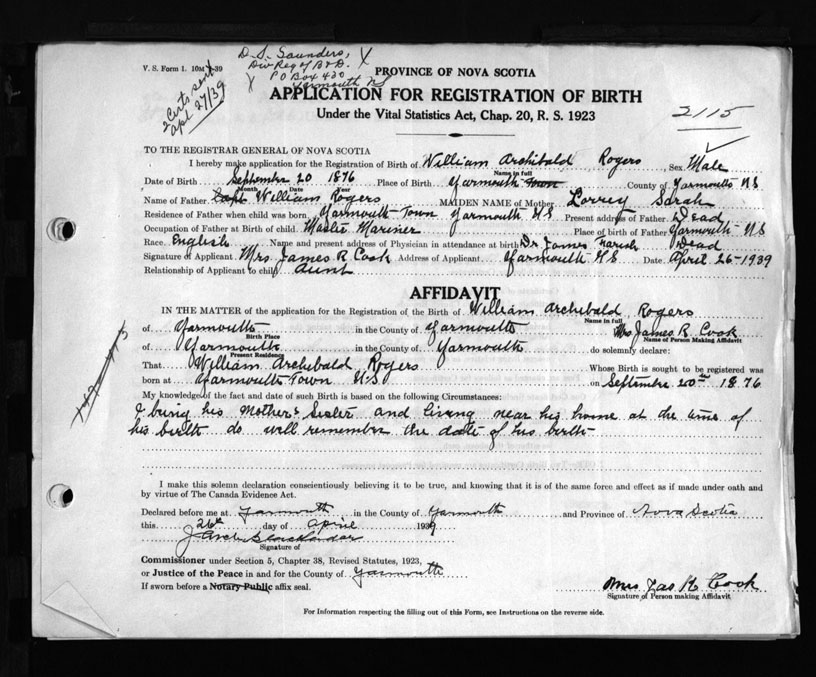 V. S. Form 1. 10M 4-39
D. S. Saunders,
Div Reg of B & D.
P O Box 430
Yarmouth NS
2 Certs sent
apl 27/39
PROVINCE OF NOVA SCOTIA
APPLICATION FOR REGISTRATION OF BIRTH
Under the Vital Statistics Act, Chap. 20, R. S. 1923
2115
TO THE REGISTRAR GENERAL OF NOVA SCOTIA
I hereby make application for the Registration of Birth of William Archibald Rogers Sex Male
Name in full
Date of Birth September 20 1876 Place of Birth Yarmouth Town County of Yarmouth NS
Month Date Year
Name of Father Capt William Rogers MAIDEN NAME of Mother Sarah
Residence of Father when child was born Yarmouth Town Yarmouth NS Present address of Father Dead
Occupation of Father at Birth of child Master Mariner Place of birth of Father Yarmouth NS
Race English Name and present address of Physician in attendance at birth Dr James Farish Dead
Signature of Applicant Mrs. James R Cook Address of Applicant Yarmouth N S Date April 26-1939
Relationship of Applicant to child Aunt
AFFIDAVIT
IN THE MATTER of the application for the Registration of the Birth of William Archibald Rogers
Name in full
of Yarmouth in the County of Yarmouth Mrs James R. Cook
Birth Place Name of Person Making Affidavit
of Yarmouth in the County of Yarmouth do solemnly declare:
Present Residence
That William Archibald Rogers Whose Birth is sought to be registered was
born at Yarmouth Town N.S on September 20th 1876
My knowledge of the fact and date of such Birth is based on the following Circumstances:
I being his Mother's Sister and living near his home at the time of
his birth do well remember the date of his birth
I make this solemn declaration conscientiously believing it to be true, and knowing that it is of the same force and effect as if made under oath and
by virtue of The Canada Evidence Act.
Declared before me at Yarmouth in the County of Yarmouth and Province of Nova Scotia
this 26th day of April 1939
Signature of
Commissioner under Section 5, Chapter 38, Revised Statutes, 1923,
or Justice of the Peace in and for the County of Yarmouth
If sworn before a Notary Public affix seal.
Mrs Jas R Cook
Signature of Person making Affidavit
For Information respecting the filling out of this Form, see Instructions on the reverse side.